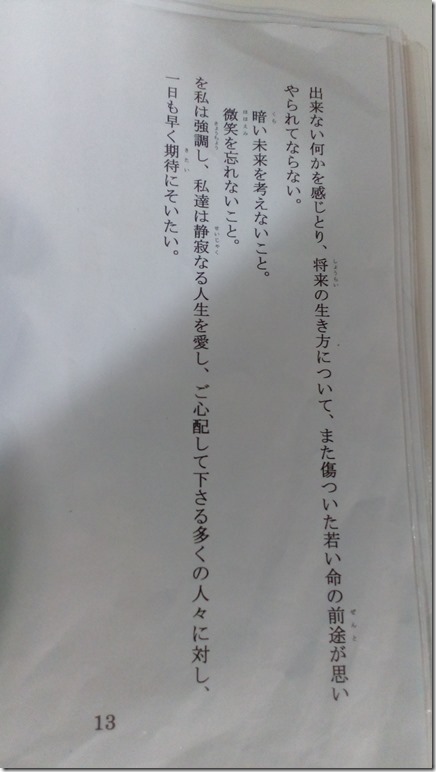 出来ない何かを感じとり、将来の生き方について、また傷ついた若い命の前途が思い
やられてならない。
暗い未来を考えないこと。
微笑を忘れないこと。
を私は強調し、私達は静寂なる人生を愛し、ご心配して下さる多くの人々に対し、
一日も早く期待にそいたい。
13